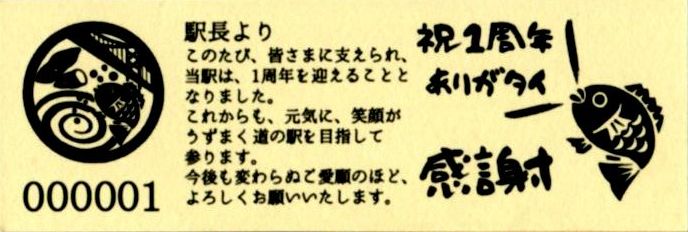 駅長より
このたび、皆さまに支えられ、
当駅は、1周年を迎えることと
なりました。
これからも、元気に、笑顔が
うずまく道の駅を目指して
参ります。
今後も変わらぬご愛顧のほど、
よろしくお願いいたします。
000001
祝1周年
ありガタイ
感謝射